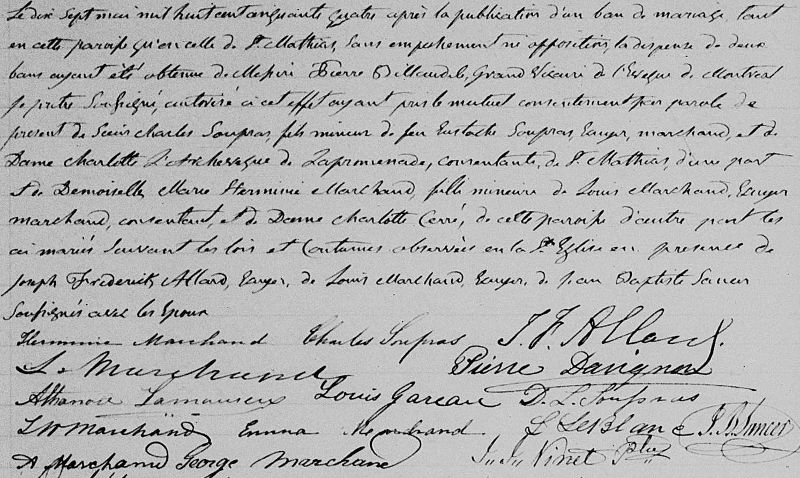 Le dix Sept mai mil huit cent cinquante quatre après la publication d'un ban de mariage, tant
en cette paroisse qu'en celle de St. Mathias, Sans empêchement ni opposition, la dispense de deux
bans ayant été obtenue de Messire Pierre Billaudele, Grand Vicaire de l'Evêque de Montréal
Je prêtre Soussigné, autorisé à cet effet ayant pris le mutuel consentement par parole de
présent de Sieur Charles Soupras, fils mineur de feu Eustache Soupras, Ecuyer, marchand, et de
Dame Charlotte L'Archevesque de Lapromenade, consentante, de St. Mathias, d'une part
et de Demoiselle Marie Herminie Marchand, fille mineure de Louis Marchand, Ecuyer
marchand, consentant, et de Dame Charlotte Cerré, de cette paroisse d'autre part les
ai mariés Suivant les lois et Coutumes observées en la Ste Eglise en présence de
Joseph Frederick Allard, Ecuyer, de Louis Marchand, Ecuyer, de Jean Baptiste
Soussignés avec les Epoux
Herminie Marchand Charles Soupras J. F. Allard.
Ls Marchand Pierre Davignon
Lamoureux Louis Gareau D. L. Soupras
Marchand Emma Marchand LeBlanc J. B.
A Marchand George Marchand Vinet Ptre